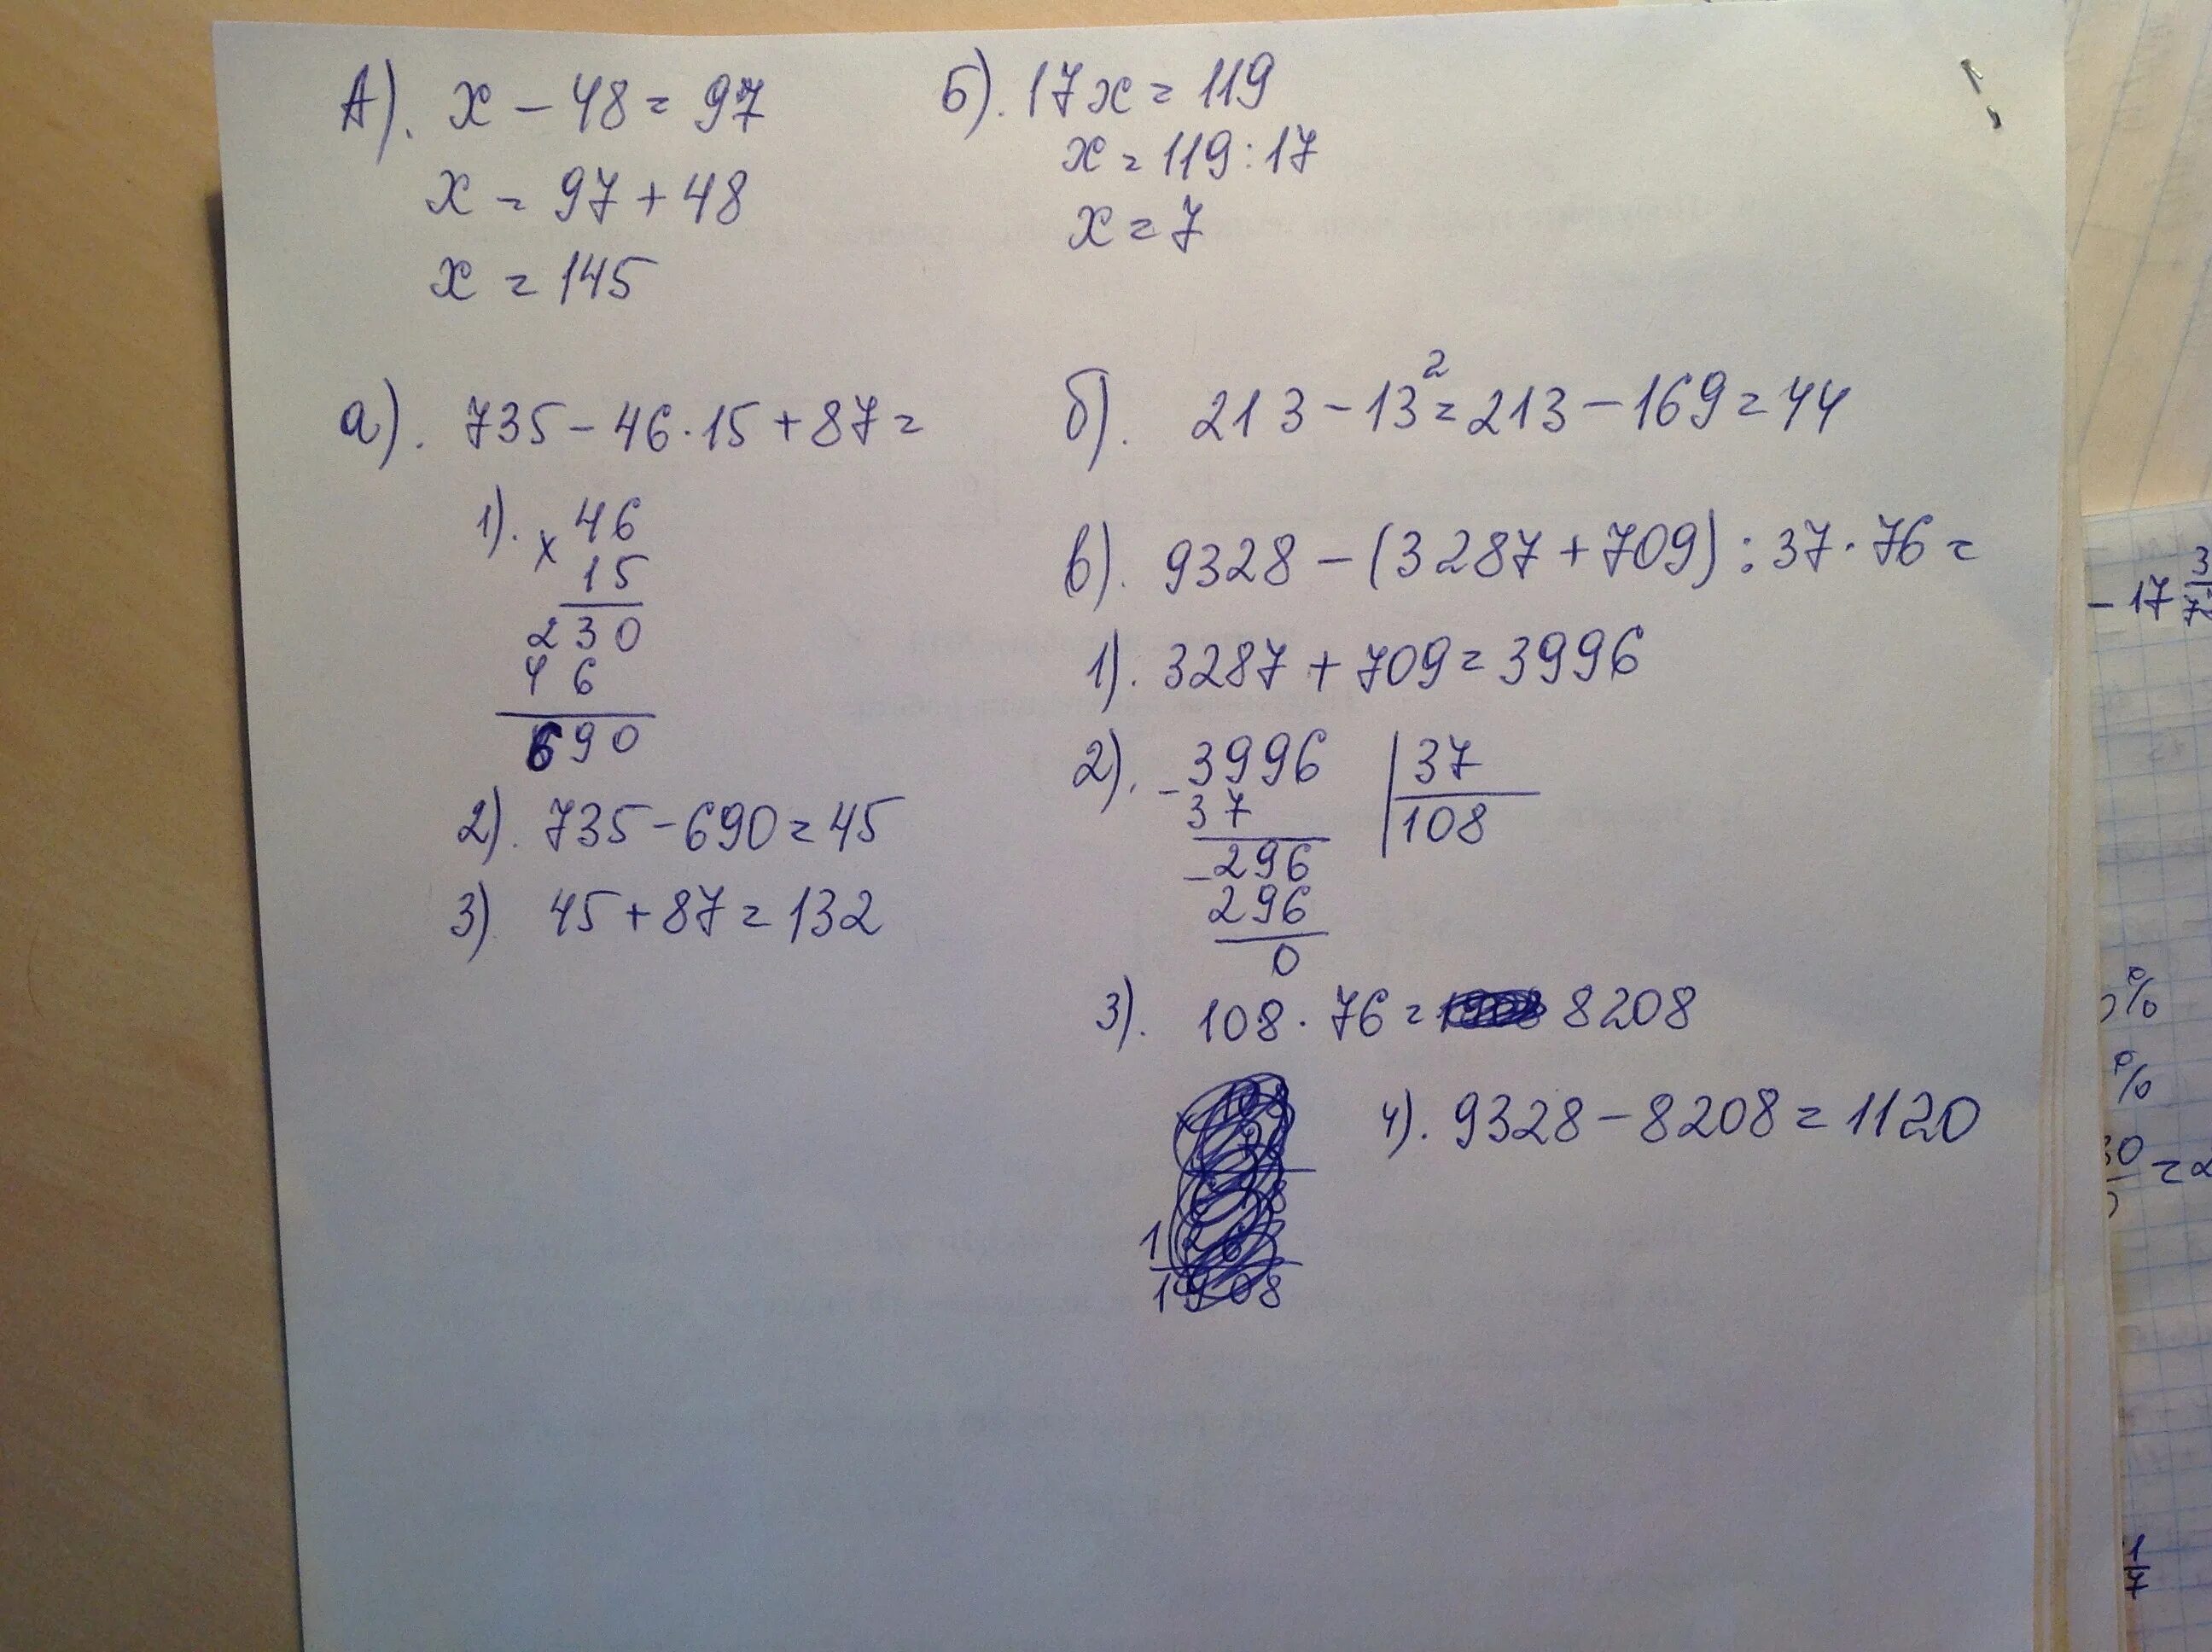 А). x - 48 = 97
x = 97 + 48
x = 145
Б). 17x = 119
x = 119 : 17
x = 7
а). 735 - 46 · 15 + 87 =
1). × 46
15
230
46
690
2). 735 - 690 = 45
3) 45 + 87 = 132
б). 213 - 13² = 213 - 169 = 44
в). 9328 - (3287 + 709) : 37 · 76 =
1). 3287 + 709 = 3996
2). - 3996 | 37
37 108
- 296
296
0
3). 108 · 76 = 8208
4). 9328 - 8208 = 1120
- 17
%
%
30 = 2
1/7